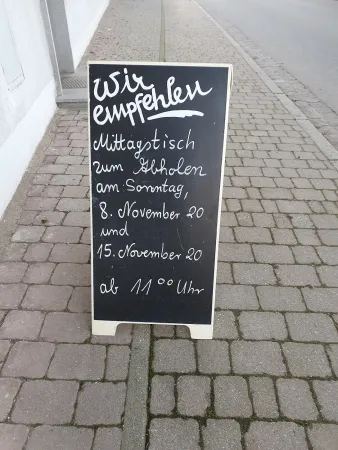 Wir
empfehlen
Mittagstisch
zum Abholen
am Sonntag,
8. November 20
und
15. November 20
ab 11⁰⁰ Uhr